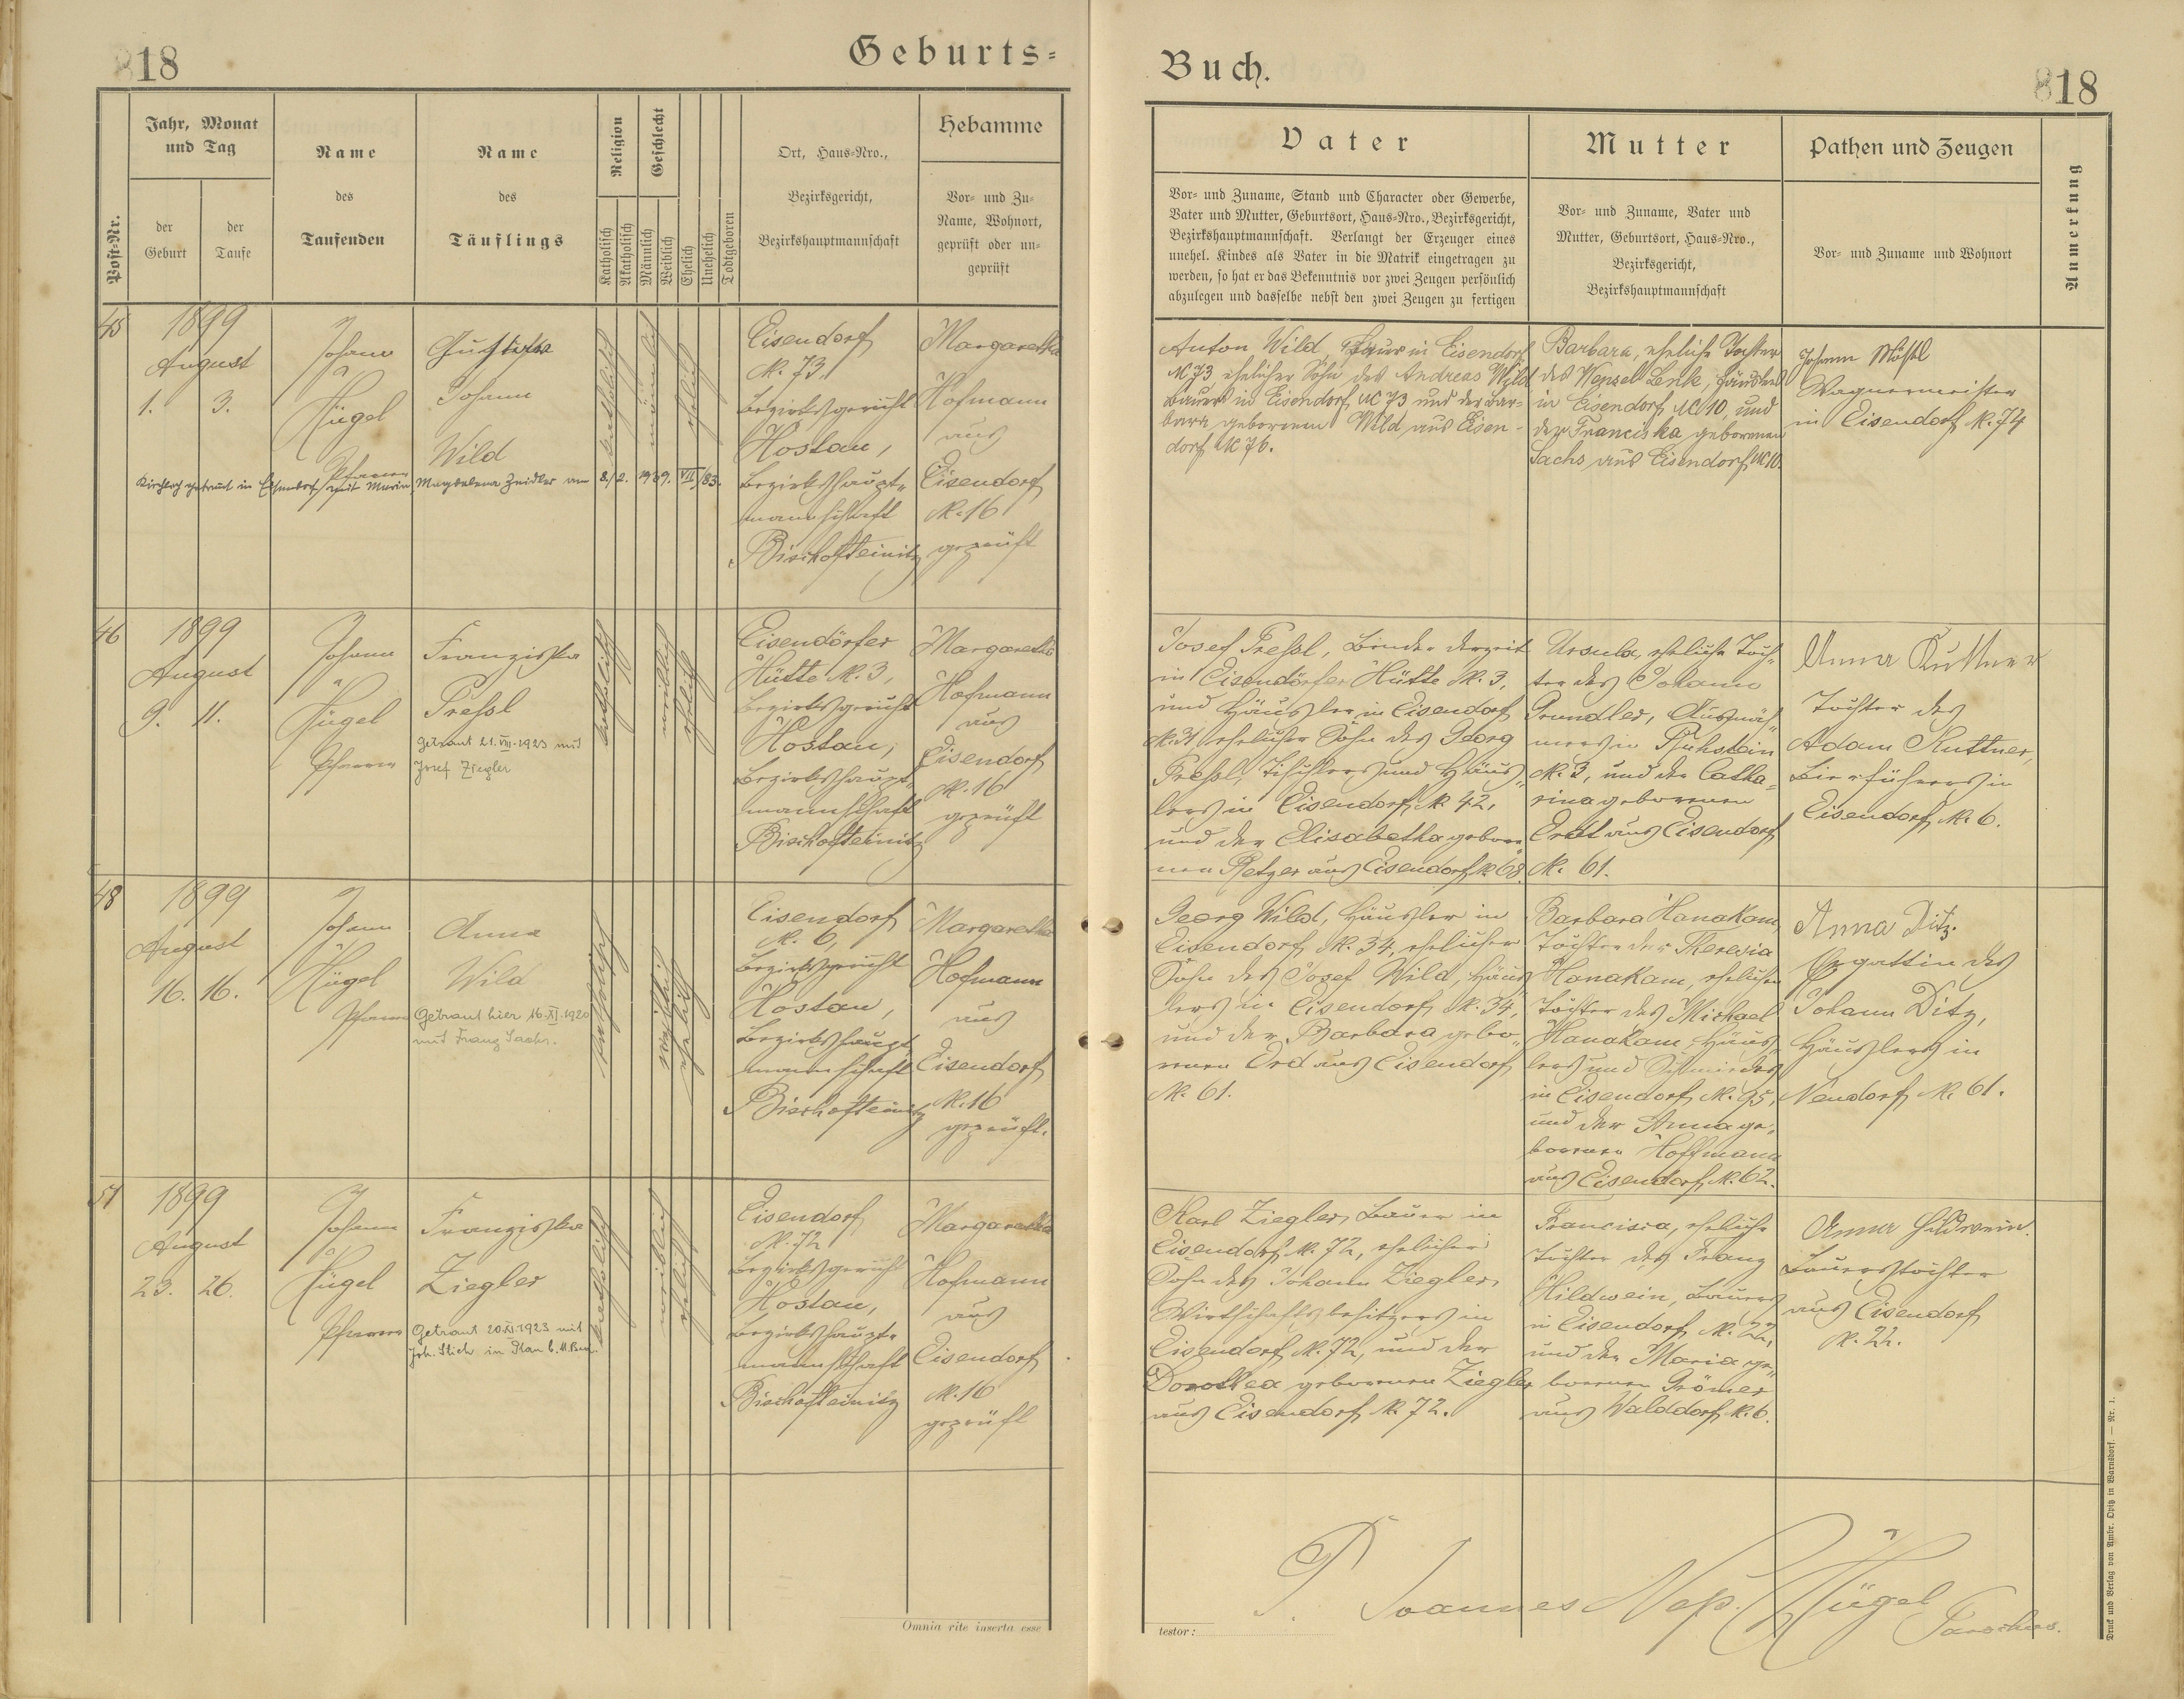 818
Geburts-
Post-Nr.
Jahr, Monat
und Tag
der
Geburt
der
Taufe
Name
des
Taufenden
Name
des
Täuflings
Religion
Katholisch
Akatholisch
Geschlecht
Männlich
Weiblich
Ehelich
Unehelich
Todtgeboren
Ort, Haus-Nro.,
Bezirksgericht,
Bezirkshauptmannschaft
Hebamme
Vor- und Zu-
Name, Wohnort,
geprüft oder un-
geprüft
45
1899
August
1. 3.
Johann
Hügel
Pfarrer
Johann
Wild
Kirchlich getraut in Eisendorf mit Maria Magdalena Zeidler am 8./2. 1939. VII/83.
katholisch
männlich
ehelich
Eisendorf
N. 73,
Bezirksgericht
Hostau,
Bezirkshaupt-
mannschaft
Bischofteinitz
Margaretha
Hofmann
aus
Eisendorf
N. 16
geprüft
46
1899
August
9. 11.
Johann
Hügel
Pfarrer
Franziska
Preßl
Getraut 21.VIII.1923 mit
Josef Ziegler
katholisch
weiblich
ehelich
Eisendörfer
Hütte N. 3,
Bezirksgericht
Hostau,
Bezirkshaupt-
mannschaft
Bischofteinitz
Margaretha
Hofmann
aus
Eisendorf
N. 16
geprüft
48
1899
August
16. 16.
Johann
Hügel
Pfarrer
Anna
Wild
Getraut hier 16.XI.1920
mit Franz Sachs.
katholisch
weiblich
ehelich
Eisendorf
N. 6,
Bezirksgericht
Hostau,
Bezirkshaupt-
mannschaft
Bischofteinitz
Margaretha
Hofmann
aus
Eisendorf
N. 16
geprüft.
51
1899
August
23. 26.
Johann
Hügel
Pfarrer
Franziska
Ziegler
Getraut 20.XI.1923 mit
Joh. Stich in Plan b. M.
katholisch
weiblich
ehelich
Eisendorf
N. 72
Bezirksgericht
Hostau,
Bezirkshaupt-
mannschaft
Bischofteinitz
Margaretha
Hofmann
aus
Eisendorf
N. 16
geprüft
Omnia rite inserta esse
Buch.
818
Vater
Vor- und Zuname, Stand und Character oder Gewerbe,
Vater und Mutter, Geburtsort, Haus-Nro., Bezirksgericht,
Bezirkshauptmannschaft. Verlangt der Erzeuger eines
unehel. Kindes als Vater in die Matrik eingetragen zu
werden, so hat er das Bekenntnis vor zwei Zeugen persönlich
abzulegen und dasselbe nebst den zwei Zeugen zu fertigen
Mutter
Vor- und Zuname, Vater und
Mutter, Geburtsort, Haus-Nro.,
Bezirksgericht,
Bezirkshauptmannschaft
Pathen und Zeugen
Vor- und Zuname und Wohnort
Anmerkung
Anton Wild, Bauer in Eisendorf
N 73 ehelicher Sohn des Andreas Wild
Bauers in Eisendorf N 73 und der Bar-
bara geborenen Wild aus Eisen-
dorf N 76.
Barbara, eheliche Tochter
des Wenzel Lenk, Häuslers
in Eisendorf N 10, und
der Franciska geborenen
Sachs aus Eisendorf N 10.
Johann
Wagnermeister
in Eisendorf N. 74
Josef Preßl, Binder derzeit
in Eisendörfer Hütte N. 3,
und Häusler in Eisendorf
N. 31, ehelicher Sohn des Georg
Preßl, Tischlers und Häus-
lers in Eisendorf N. 42,
und der Elisabetha gebore-
nen Retzer aus Eisendorf N. 68.
Ursula, eheliche Toch-
ter des Johann
Grundler,
in
N. 3, und der Catha-
rina geborenen
aus Eisendorf
N. 61.
Anna Kuttner
Tochter des
Adam Kuttner,
Bierführers in
Eisendorf N. 6.
Georg Wild, Häusler in
Eisendorf N. 34, ehelicher
Sohn des Josef Wild, Häus-
lers in Eisendorf N. 34,
und der Barbara gebo-
renen Erd aus Eisendorf
N. 61.
Barbara Hanakam,
Tochter der Theresia
Hanakam, ehelichen
Tochter des Michael
Hanakam, Häus-
lers und Schmiedes
in Eisendorf N. 95,
und der Anna ge-
borenen Hoffmann
aus Eisendorf N. 62.
Anna Ditz.
Ehegattin des
Johann Ditz,
Häuslers in
Neudorf N. 61.
Karl Ziegler, Bauer in
Eisendorf N. 72, ehelicher
Sohn des Johann Ziegler,
Wirtschaftsbesitzers in
Eisendorf N. 72, und der
Dorothea geborenen Ziegler
aus Eisendorf N. 72.
Francisca, eheliche
Tochter des Franz
Hildwein, Bauers
in Eisendorf N. 22,
und der Maria ge-
borenen Grömer
aus Walddorf N. 6.
Anna Hildwein.
Bauerstochter
aus Eisendorf
N. 22.
testor:
P. Joannes Nep. Hügel
Parochus.
Druck und Verlag von Ambr. Opitz in Warnsdorf. — Nr. 1.